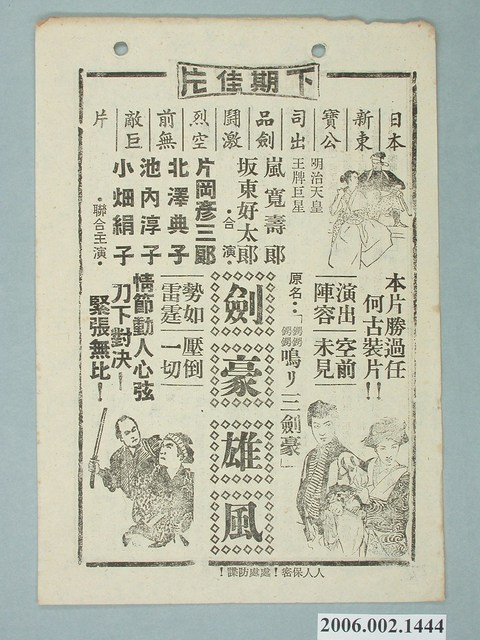 下期佳片
日本
新東
寶公
司出
品劍
鬪激
烈空
前無
敵巨
片
明治天皇
王牌巨星
嵐寬壽郎
坂東好太郎
·合演·
片岡彥三郎
北澤典子
池內淳子
小畑絹子
·聯合主演·
本片勝過任
何古裝片!!
演出空前
陣容未見
原名:「鍔鳴リ三劍豪」
劍豪雄風
勢如壓倒
雷霆一切
情節動人心弦
刀下對決!
緊張無比!
人人保密!處處防諜!
2006.002.1444